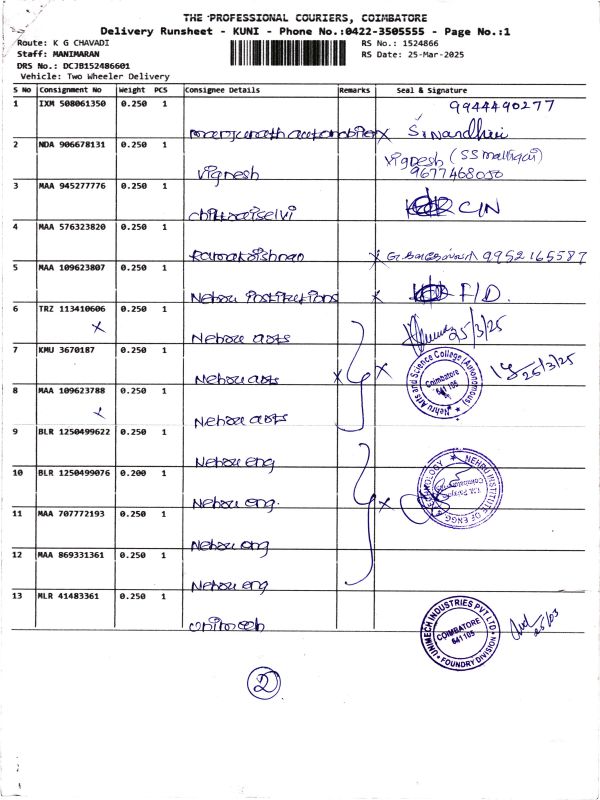 THE PROFESSIONAL COURIERS, COIMBATORE
Delivery Runsheet - KUNI - Phone No.:0422-3505555 - Page No.:1
Route: K G CHAVADI
RS No.: 1524866
Staff: MANIMARAN
RS Date: 25-Mar-2025
DRS No.: DCJB152486601
Vehicle: Two Wheeler Delivery
S No Consignment No Weight PCS Consignee Details Remarks Seal & Signature
1 IXM 508061350 0.250 1 9944490277
manjunath automobiles x S. Nandhini
2 NDA 906678131 0.250 1 Vignesh (SS malligai)
Vignesh 9677468050
3 MAA 945277776 0.250 1
chittraiselvi C/N
4 MAA 576323820 0.250 1
Ramakrishnan x 9952165587
5 MAA 109623807 0.250 1
Nehru Institutions x F/D.
6 TRZ 113410606 0.250 1
x Nehru arts 25/3/25
7 KMU 3670187 0.250 1
Nehru arts x x 25/3/25
Nehru Arts and Science College (Autonomous)
Coimbatore
641 105
8 MAA 109623788 0.250 1
Nehru arts
9 BLR 1250499622 0.250 1
Nehru eng
10 BLR 1250499076 0.200 1
Nehru eng. x
NEHRU INSTITUTE OF ENGG
TECHNOLOGY
11 MAA 707772193 0.250 1
Nehru eng
12 MAA 869331361 0.250 1
Nehru eng
13 MLR 41483361 0.250 1
unimech
UNIMECH INDUSTRIES PVT LTD
COIMBATORE
641 105
FOUNDRY DIVISION
25/03
2